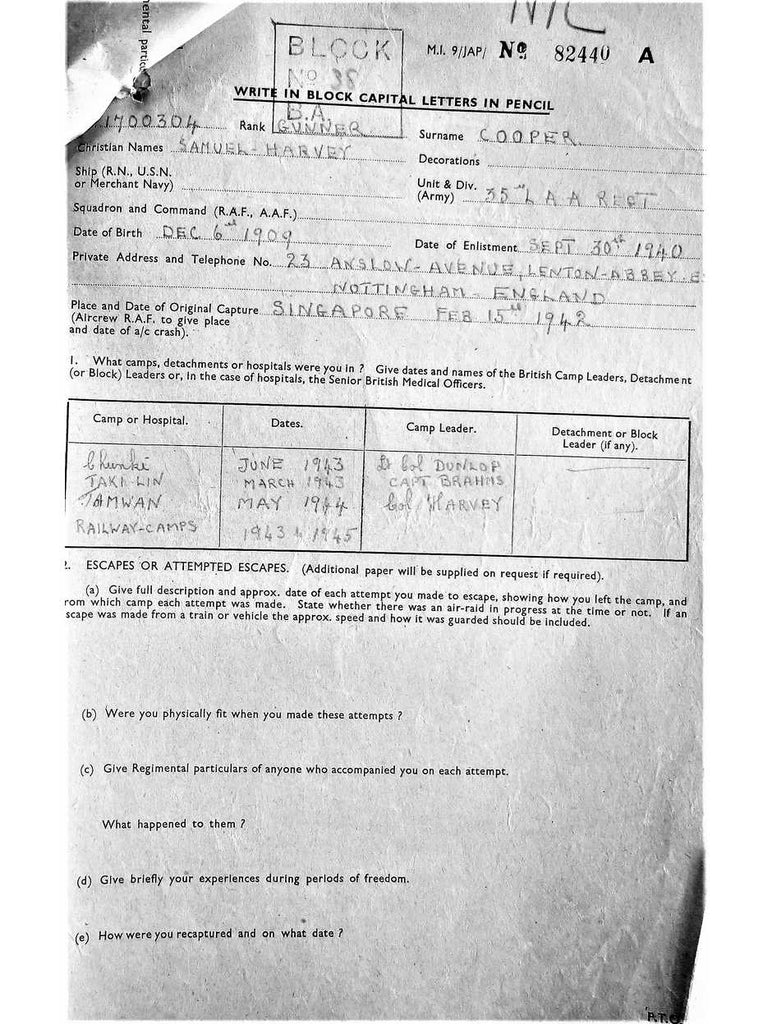 mental partic
N/L
BLOCK
No 38
B.A.
M.I. 9/JAP/ No. 82440 A
WRITE IN BLOCK CAPITAL LETTERS IN PENCIL
1700304 Rank GUNNER Surname COOPER
Christian Names SAMUEL-HARVEY Decorations
Ship (R.N., U.S.N.
or Merchant Navy)
Unit & Div.
(Army) 35TH L A A REGT
Squadron and Command (R.A.F., A.A.F.)
Date of Birth DEC 6th 1909 Date of Enlistment SEPT 30th 1940
Private Address and Telephone No. 23 ANSLOW-AVENUE, LENTON-ABBEY-E
NOTTINGHAM-ENGLAND
Place and Date of Original Capture SINGAPORE FEB 15th 1942
(Aircrew R.A.F. to give place
and date of a/c crash).
1. What camps, detachments or hospitals were you in ? Give dates and names of the British Camp Leaders, Detachment
(or Block) Leaders or, in the case of hospitals, the Senior British Medical Officers.
Camp or Hospital. Dates. Camp Leader. Detachment or Block
Leader (if any).
Chunki JUNE 1943 Lt Col DUNLOP
TAKI-LIN MARCH 1943 CAPT BRAHMS
TAMWAN MAY 1944 Col HARVEY
RAILWAY-CAMPS 1943 to 1945
2. ESCAPES OR ATTEMPTED ESCAPES. (Additional paper will be supplied on request if required).
(a) Give full description and approx. date of each attempt you made to escape, showing how you left the camp, and
rom which camp each attempt was made. State whether there was an air-raid in progress at the time or not. If an
scape was made from a train or vehicle the approx. speed and how it was guarded should be included.
(b) Were you physically fit when you made these attempts ?
(c) Give Regimental particulars of anyone who accompanied you on each attempt.
What happened to them ?
(d) Give briefly your experiences during periods of freedom.
(e) How were you recaptured and on what date ?
P.T.O.